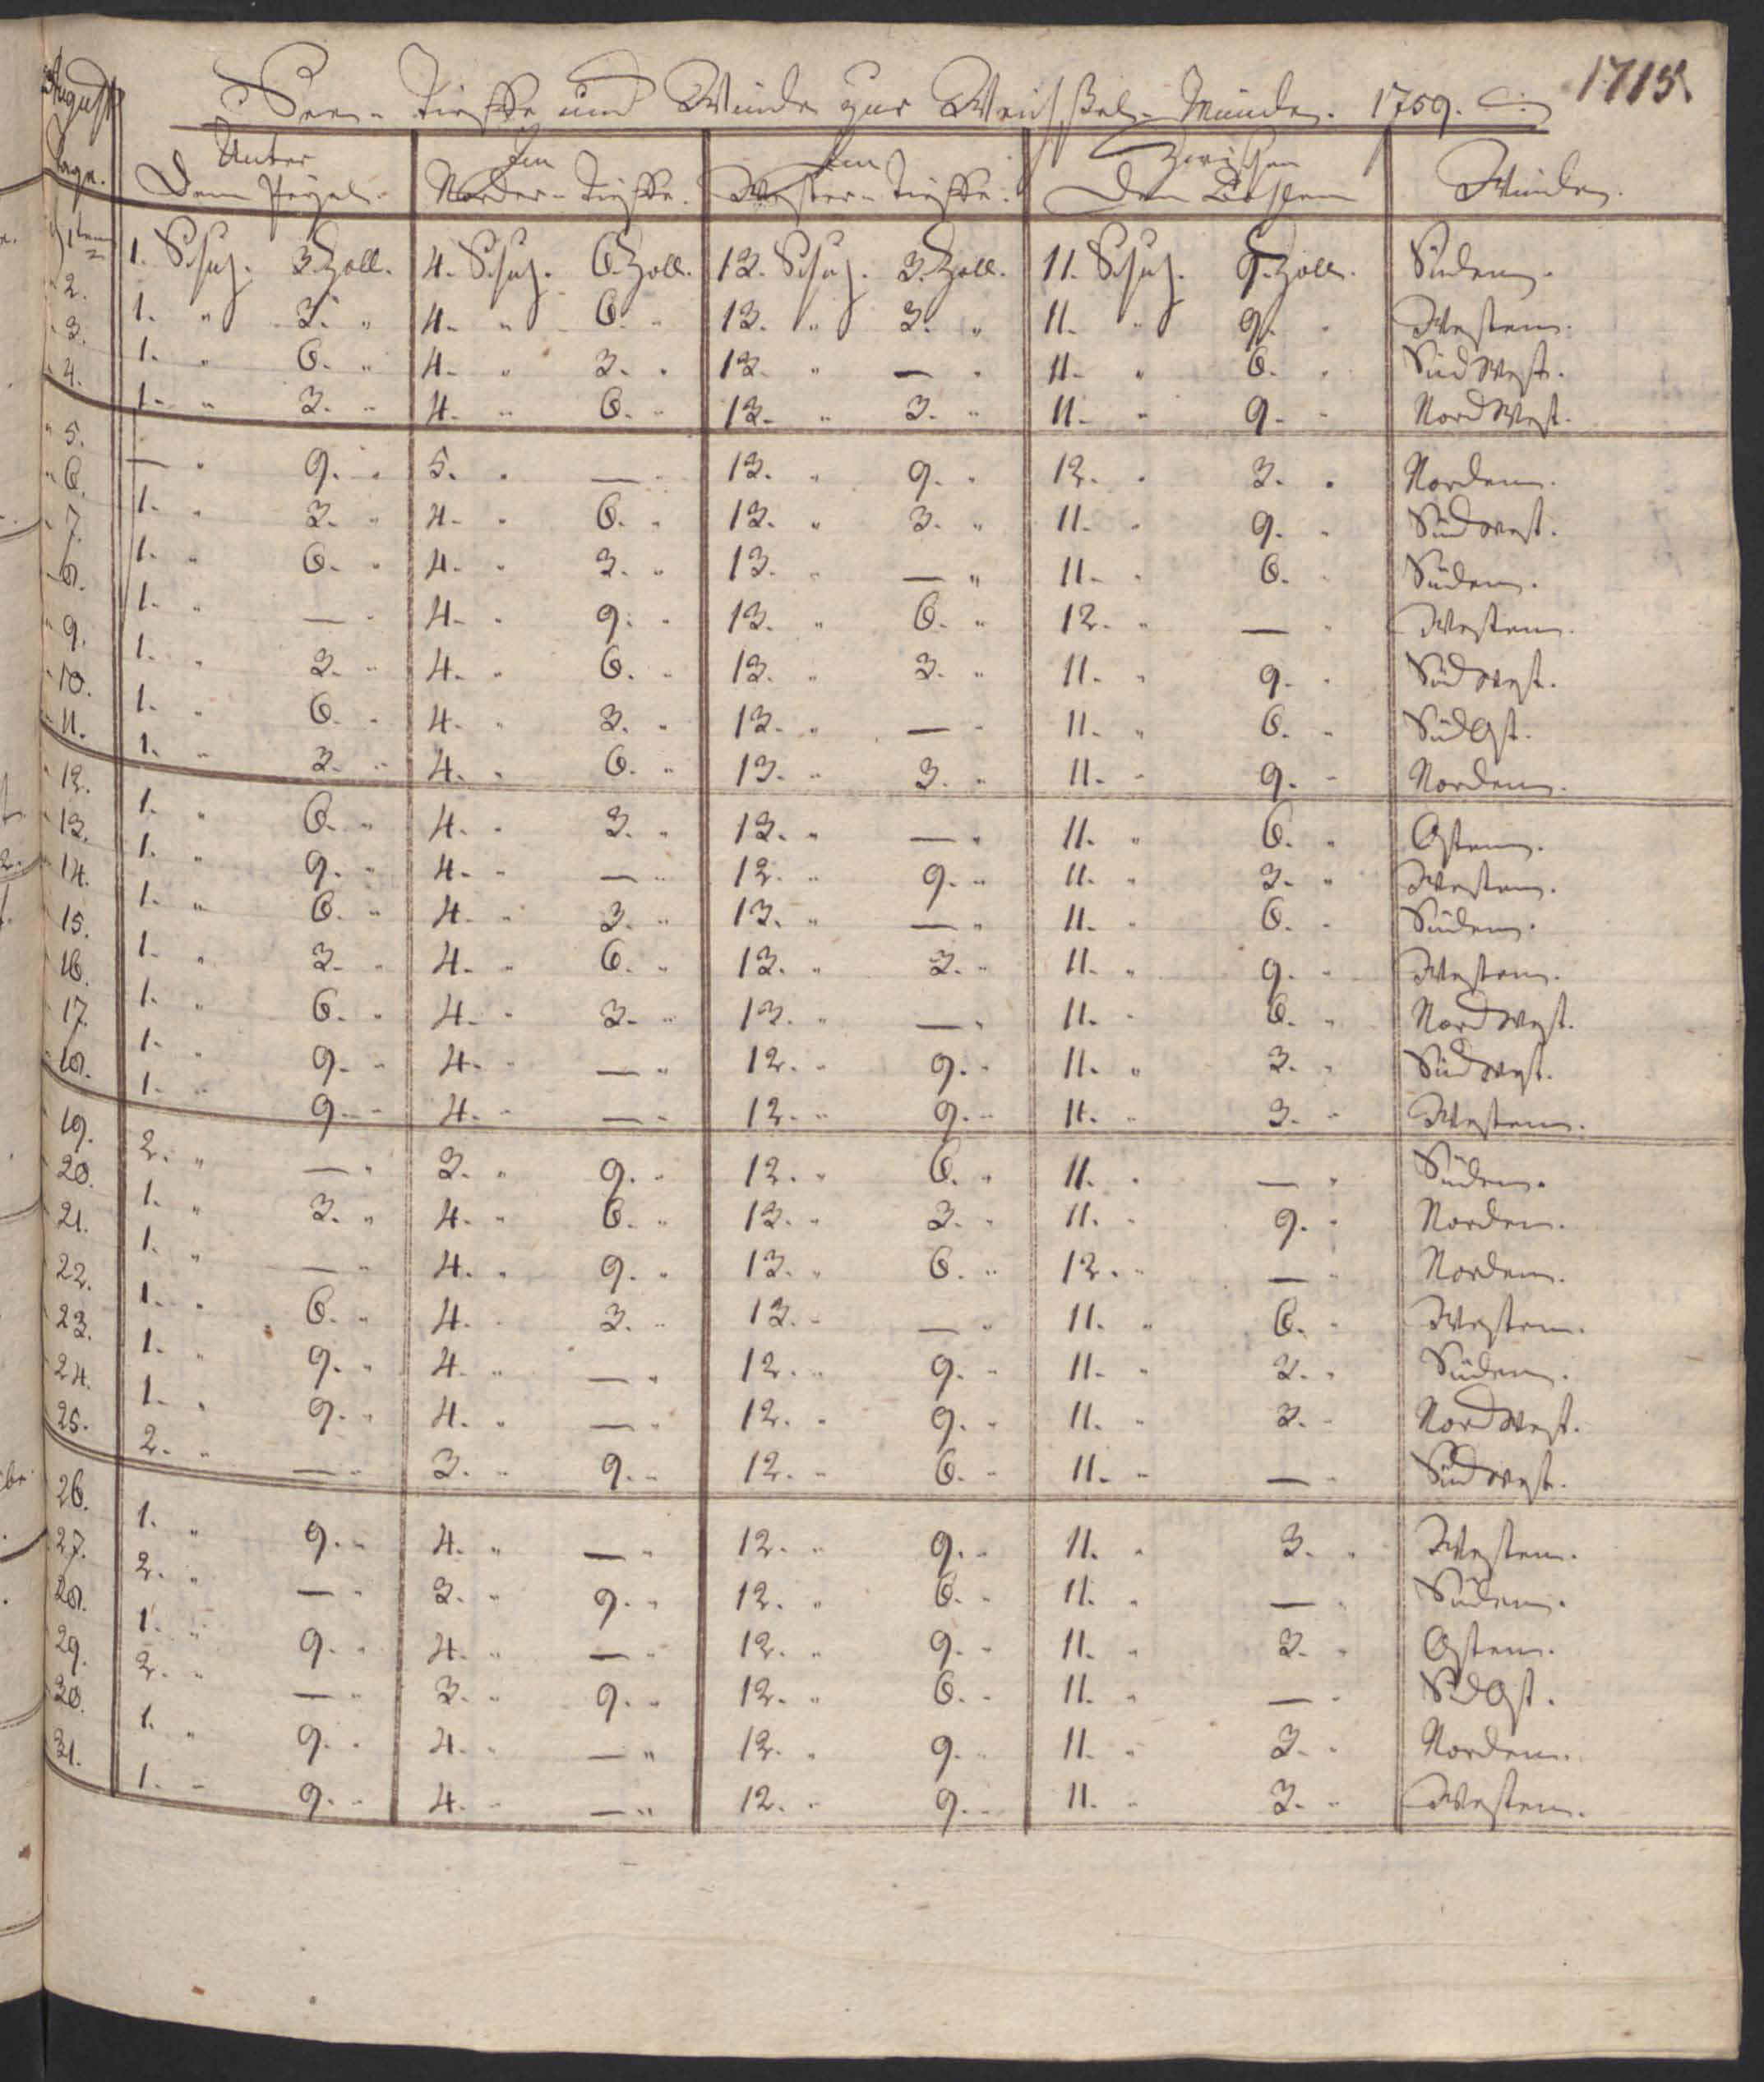 1715.
August
See- Tieffe und Winde zur Weichsel- Münde. 1759.
Tage. Unter Dem Pegel- Im Norder- Tieffe. Im Wester- Tieffe. Zwischen Den Winde.
1ten 1. Schuh. 3. Zoll. 4. Schuh. 6. Zoll. 13. Schuh. 3. Zoll. 11. Schuh. 9. Zoll. Süden.
2. 1. " 3. " 4. " 6. " 13. " 3. " 11. " 9. " Westen.
3. 1. " 6. " 4. " 3. " 13. " — " 11. " 6. " SüdWest.
4. 1. " 3. " 4. " 6. " 13. " 3. " 11. " 9. " NordWest.
5. — " 9. " 5. " — " 13. " 9. " 12. " 3. " Norden.
6. 1. " 3. " 4. " 6. " 13. " 3. " 11. " 9. " Südwest.
7. 1. " 6. " 4. " 3. " 13. " — " 11. " 6. " Süden.
8. 1. " — " 4. " 9. " 13. " 6. " 12. " — " Westen.
9. 1. " 3. " 4. " 6. " 13. " 3. " 11. " 9. " Südwest.
10. 1. " 6. " 4. " 3. " 13. " — " 11. " 6. " SüdOst.
11. 1. " 3. " 4. " 6. " 13. " 3. " 11. " 9. " Norden.
12. 1. " 6. " 4. " 3. " 13. " — " 11. " 6. " Osten.
13. 1. " 9. " 4. " — " 12. " 9. " 11. " 3. " Westen.
14. 1. " 6. " 4. " 3. " 13. " — " 11. " 6. " Süden.
15. 1. " 3. " 4. " 6. " 13. " 3. " 11. " 9. " Westen.
16. 1. " 6. " 4. " 3. " 13. " — " 11. " 6. " Nordwest.
17. 1. " 9. " 4. " — " 12. " 9. " 11. " 3. " Südwest.
18. 1. " 9. " 4. " — " 12. " 9. " 11. " 3. " Westen.
19. 2. " — " 3. " 9. " 12. " 6. " 11. " — " Süden.
20. 1. " 3. " 4. " 6. " 13. " 3. " 11. " 9. " Norden.
21. 1. " — " 4. " 9. " 13. " 6. " 12. " — " Norden.
22. 1. " 6. " 4. " 3. " 13. " — " 11. " 6. " Westen.
23. 1. " 9. " 4. " — " 12. " 9. " 11. " 3. " Süden.
24. 1. " 9. " 4. " — " 12. " 9. " 11. " 3. " Nordwest.
25. 2. " — " 3. " 9. " 12. " 6. " 11. " — " Südwest.
26. 1. " 9. " 4. " — " 12. " 9. " 11. " 3. " Westen.
27. 2. " — " 3. " 9. " 12. " 6. " 11. " — " Süden.
28. 1. " 9. " 4. " — " 12. " 9. " 11. " 3. " Osten.
29. 2. " — " 3. " 9. " 12. " 6. " 11. " — " SüdOst.
30. 1. " 9. " 4. " — " 12. " 9. " 11. " 3. " Norden.
31. 1. " 9. " 4. " — " 12. " 9. " 11. " 3. " Westen.